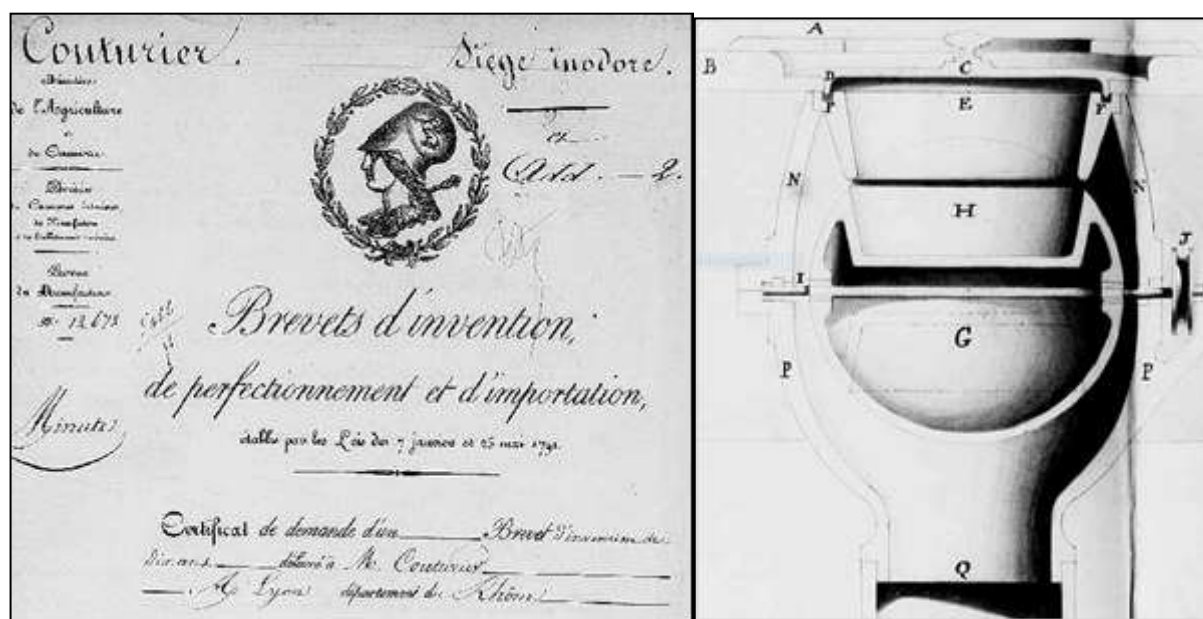 Couturier.
Siège inodore.
et
Add. — 2.
Ministère
de l'Agriculture
et
du Commerce
Division
du Commerce intérieur
Bureau
des Manufactures
N° 13,673
Minute
Brevets d'invention,
de perfectionnement et d'importation,
établis par les Lois des 7 janvier et 25 mai 1791.
Certificat de demande d'un Brevet d'invention de
dix ans délivré à M. Couturier
A Lyon département du Rhône
A
B
C
D
E
F F
N N
H
J
I
G
P P
Q